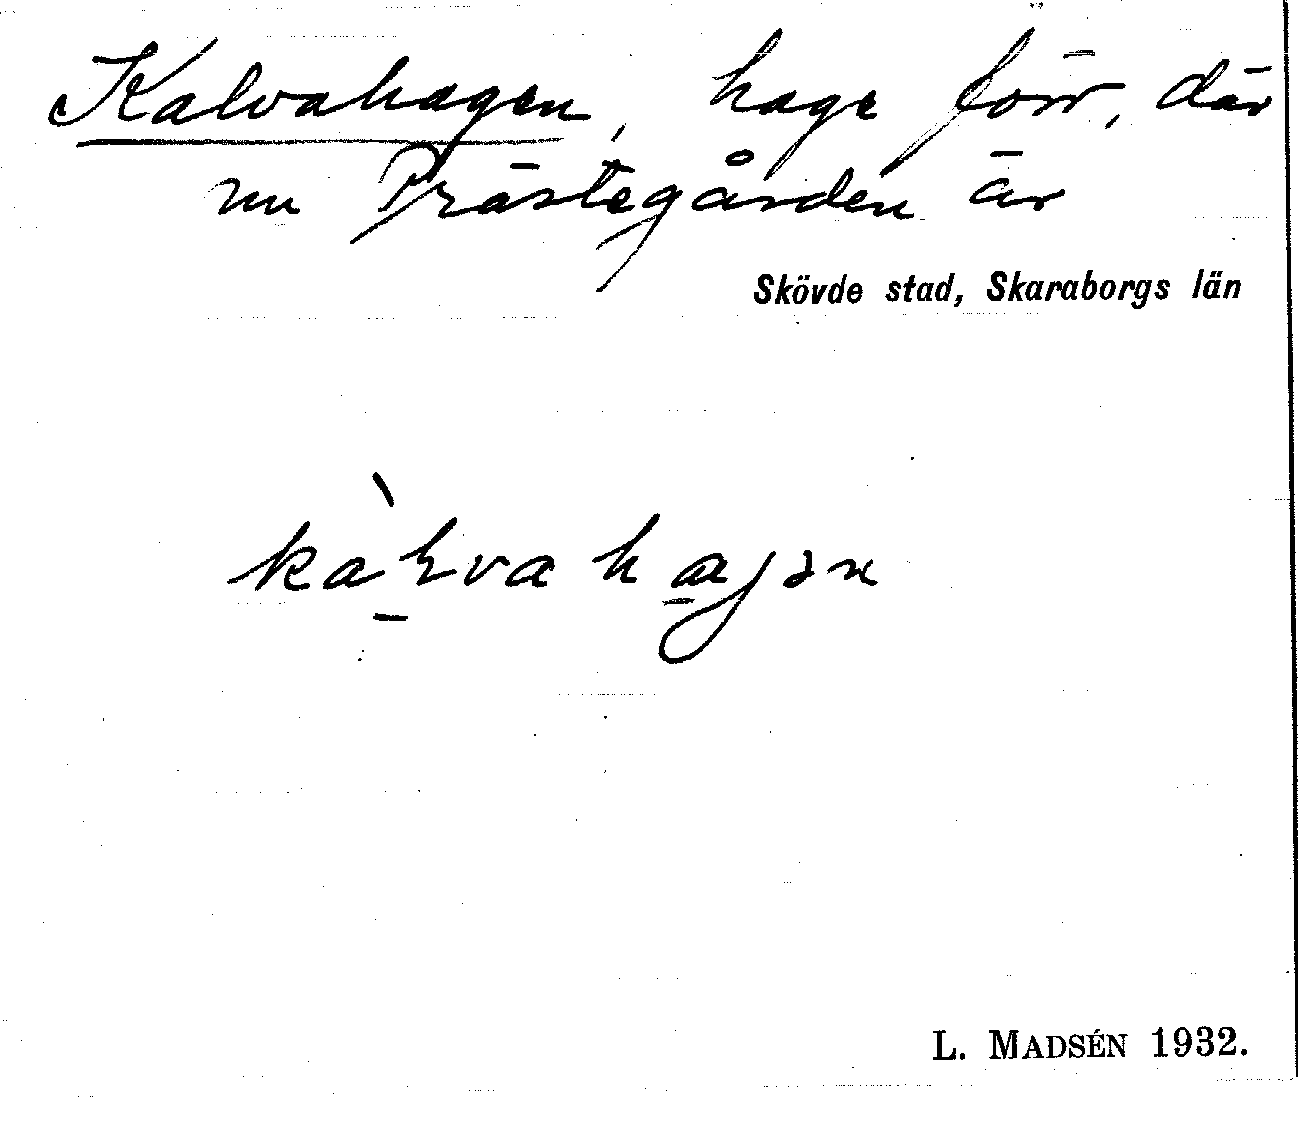 Kalvahagen, hage förr, där
nu Prästegården är
Skövde stad, Skaraborgs län
L. MADSÉN 1932.